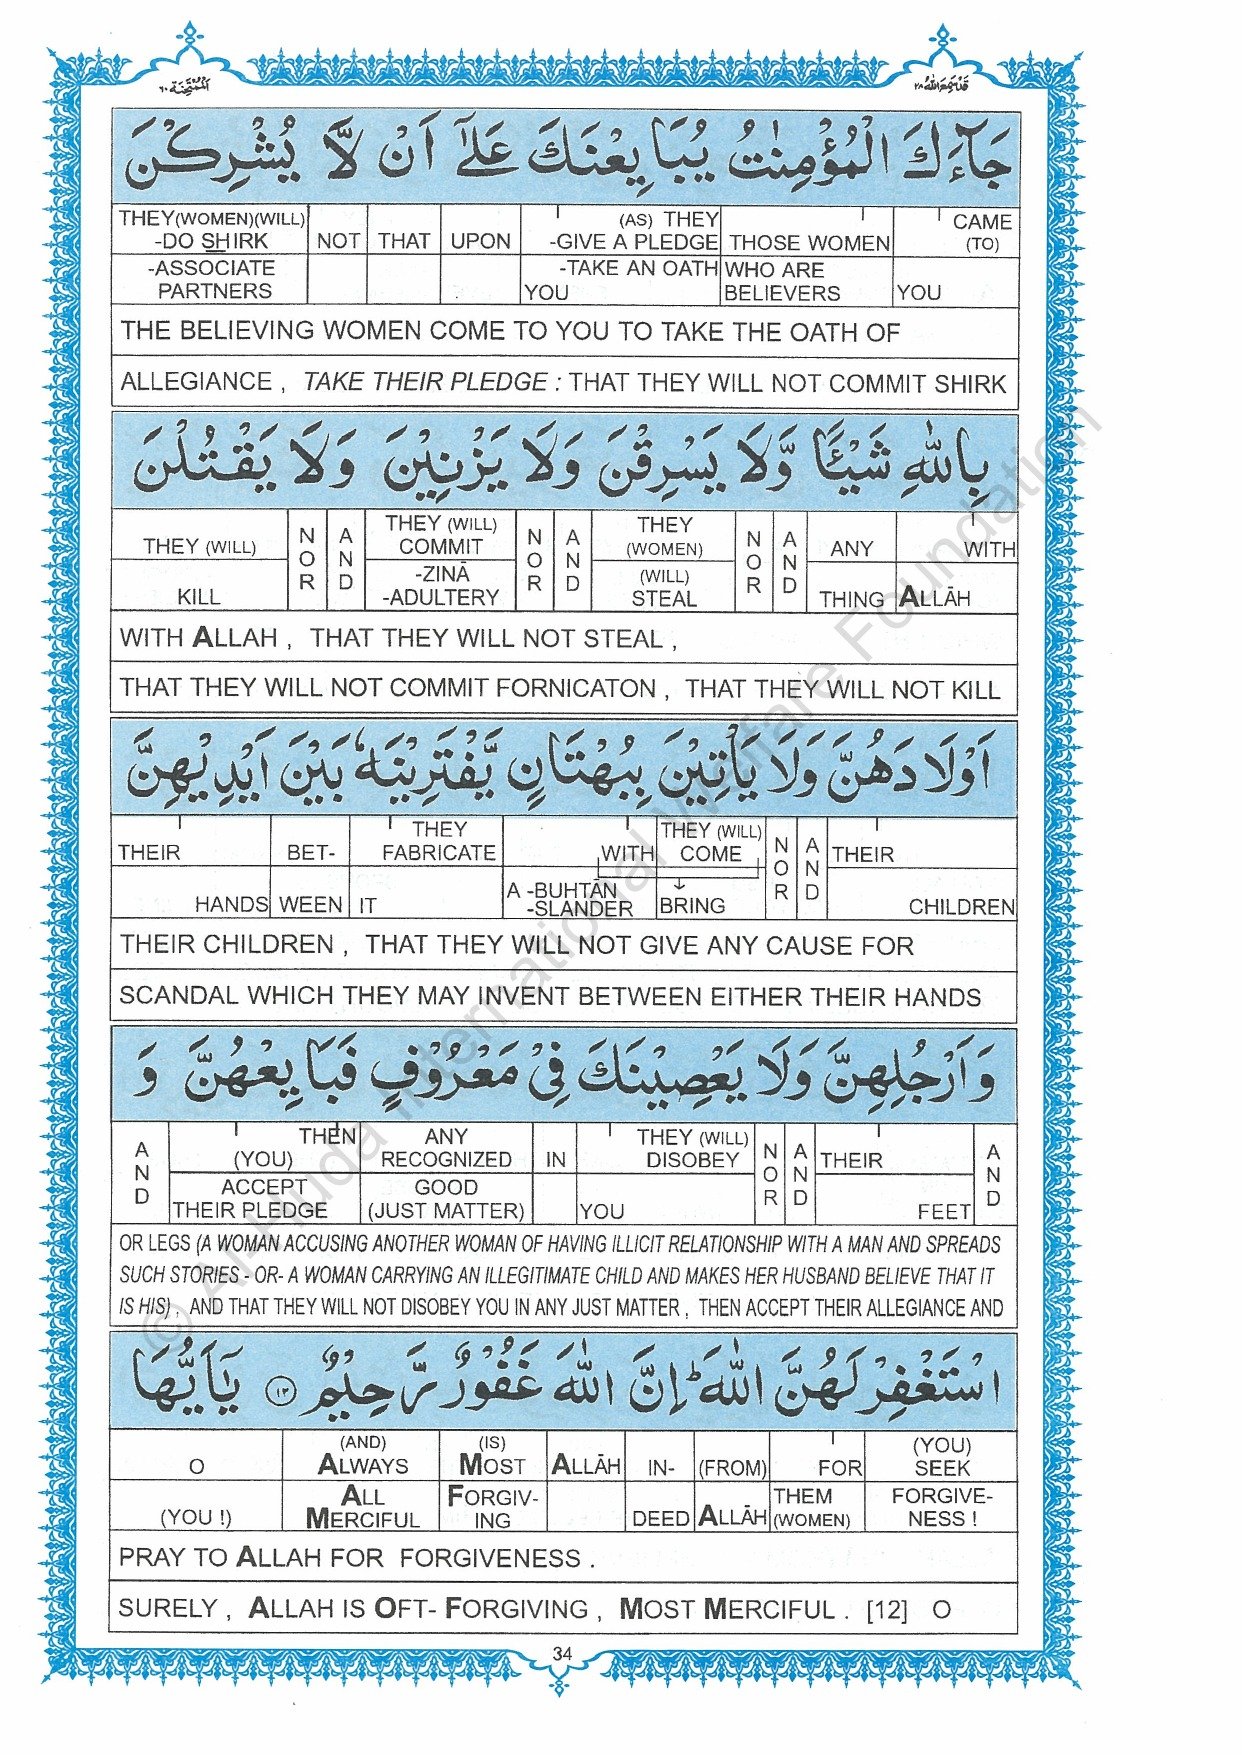 الممتحنة ٦٠
قد سمع الله ٢٨
جَآءَكَ الْمُؤْمِنٰتُ يُبَايِعْنَكَ عَلٰٓى اَنْ لَّا يُشْرِكْنَ
THEY(WOMEN)(WILL) -DO SHIRK NOT THAT UPON (AS) THEY -GIVE A PLEDGE THOSE WOMEN CAME (TO)
-ASSOCIATE PARTNERS -TAKE AN OATH YOU WHO ARE BELIEVERS YOU
THE BELIEVING WOMEN COME TO YOU TO TAKE THE OATH OF
ALLEGIANCE , TAKE THEIR PLEDGE : THAT THEY WILL NOT COMMIT SHIRK
بِاللّٰهِ شَيْـًٔا وَّلَا يَسْرِقْنَ وَلَا يَزْنِيْنَ وَلَا يَقْتُلْنَ
THEY (WILL) NOR AND THEY (WILL) COMMIT NOR AND THEY (WOMEN) NOR AND ANY WITH
KILL -ZINĀ -ADULTERY (WILL) STEAL THING ALLĀH
WITH ALLAH , THAT THEY WILL NOT STEAL ,
THAT THEY WILL NOT COMMIT FORNICATON , THAT THEY WILL NOT KILL
اَوْلَادَهُنَّ وَلَا يَأْتِيْنَ بِبُهْتَانٍ يَّفْتَرِيْنَهٗ بَيْنَ اَيْدِيْهِنَّ
THEIR BET- THEY FABRICATE WITH THEY (WILL) COME NOR AND THEIR
HANDS WEEN IT A -BUHTĀN -SLANDER BRING CHILDREN
THEIR CHILDREN , THAT THEY WILL NOT GIVE ANY CAUSE FOR
SCANDAL WHICH THEY MAY INVENT BETWEEN EITHER THEIR HANDS
وَاَرْجُلِهِنَّ وَلَا يَعْصِيْنَكَ فِيْ مَعْرُوْفٍ فَبَايِعْهُنَّ وَ
AND THEN (YOU) ANY RECOGNIZED IN THEY (WILL) DISOBEY NOR AND THEIR AND
ACCEPT THEIR PLEDGE GOOD (JUST MATTER) YOU FEET
OR LEGS (A WOMAN ACCUSING ANOTHER WOMAN OF HAVING ILLICIT RELATIONSHIP WITH A MAN AND SPREADS
SUCH STORIES - OR- A WOMAN CARRYING AN ILLEGITIMATE CHILD AND MAKES HER HUSBAND BELIEVE THAT IT
IS HIS) , AND THAT THEY WILL NOT DISOBEY YOU IN ANY JUST MATTER , THEN ACCEPT THEIR ALLEGIANCE AND
اسْتَغْفِرْ لَهُنَّ اللّٰهَ ؕ اِنَّ اللّٰهَ غَفُوْرٌ رَّحِيْمٌ ۝۱۲ يٰۤاَيُّهَا
O (AND) ALWAYS (IS) MOST ALLĀH IN- (FROM) FOR (YOU) SEEK
(YOU !) ALL MERCIFUL FORGIV- ING DEED ALLĀH THEM (WOMEN) FORGIVE- NESS !
PRAY TO ALLAH FOR FORGIVENESS .
SURELY , ALLAH IS OFT- FORGIVING , MOST MERCIFUL . [12] O
34
© Al-Huda International Welfare Foundation